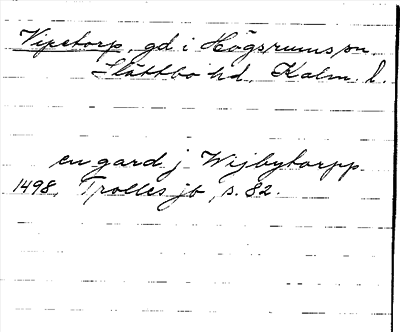 Vipetorp, gd i Högsrums sn.
Slättbo hd, Kalm. l.
en gard j Wijbytorpp
1498, Trolles jb, s. 82.